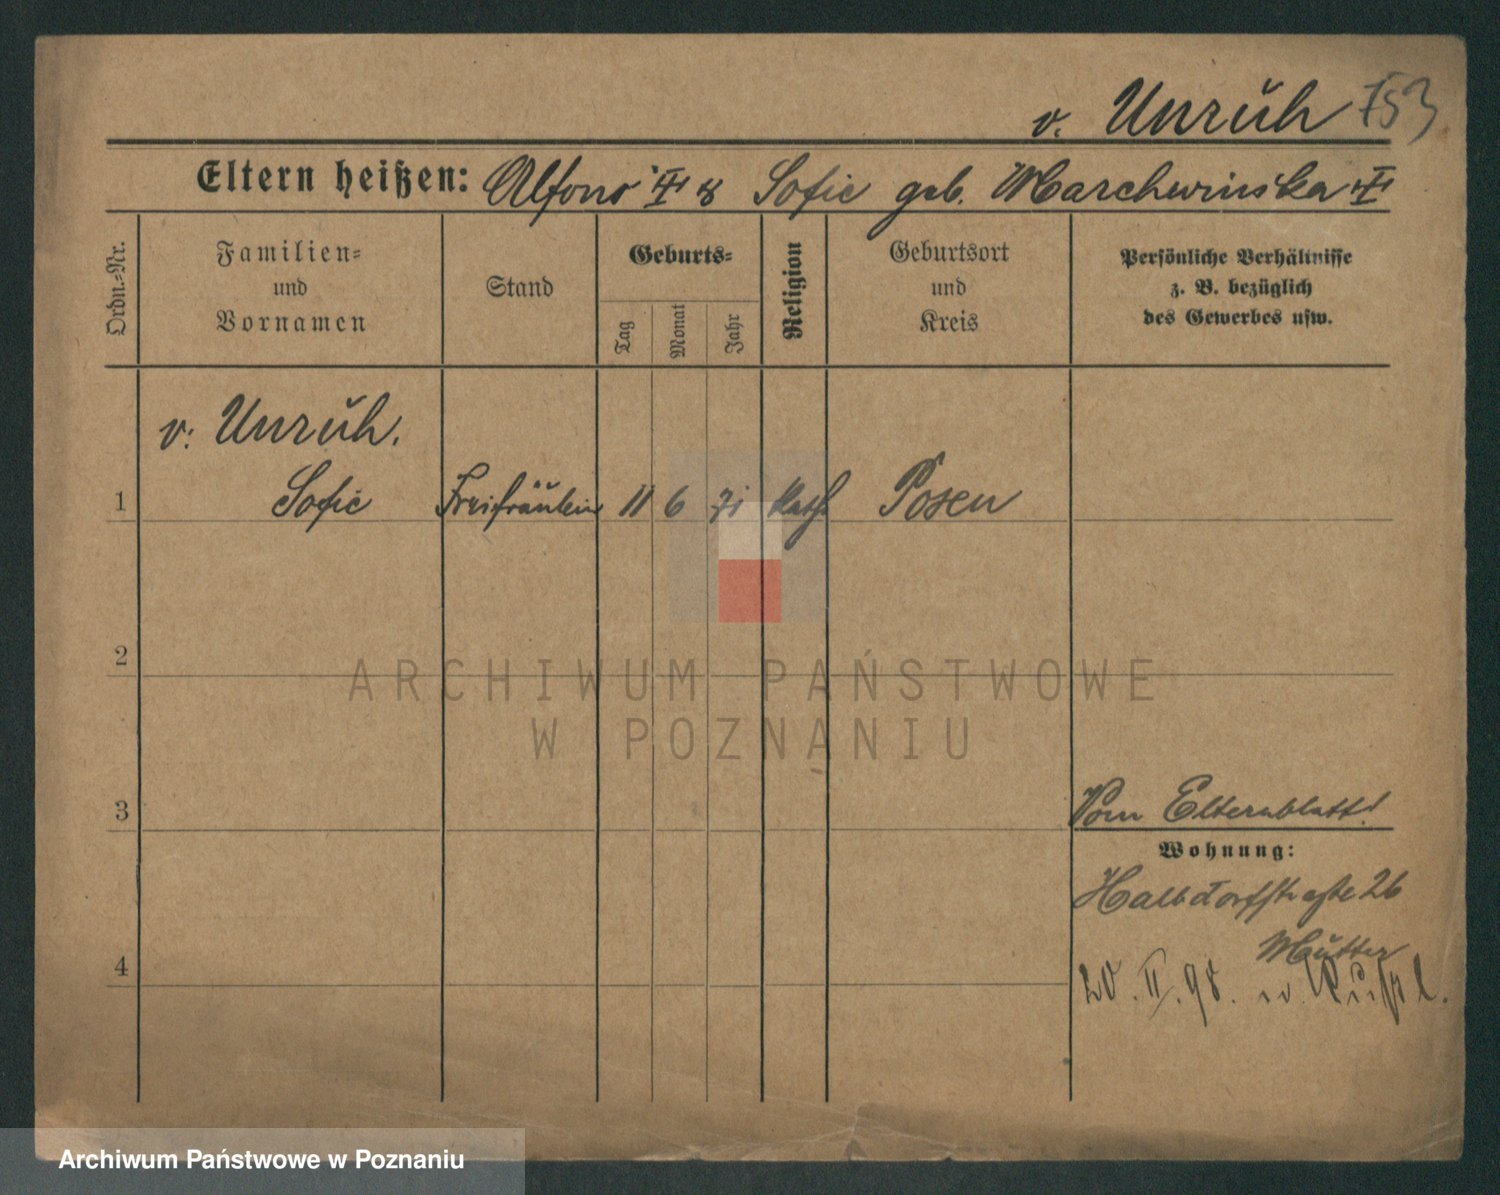 v. Unrŭh 753
Eltern heißen: Alfons & Sofie geb. Marchwinska
Ordn.-Nr.
Familien- und Vornamen
Stand
Geburts-
Tag
Monat
Jahr
Religion
Geburtsort und Kreis
Persönliche Verhältnisse
z. B. bezüglich
des Gewerbes usw.
v. Unrŭh.
1 Sofie Freifräulein 11 6 71 kath Posen
2
ARCHIWUM PAŃSTWOWE
W POZNANIU
3
Vom Elternblatt!
Wohnung:
Halbdorfstraße 26
Mŭtter
4
20. II. 98.
Archiwum Państwowe w Poznaniu